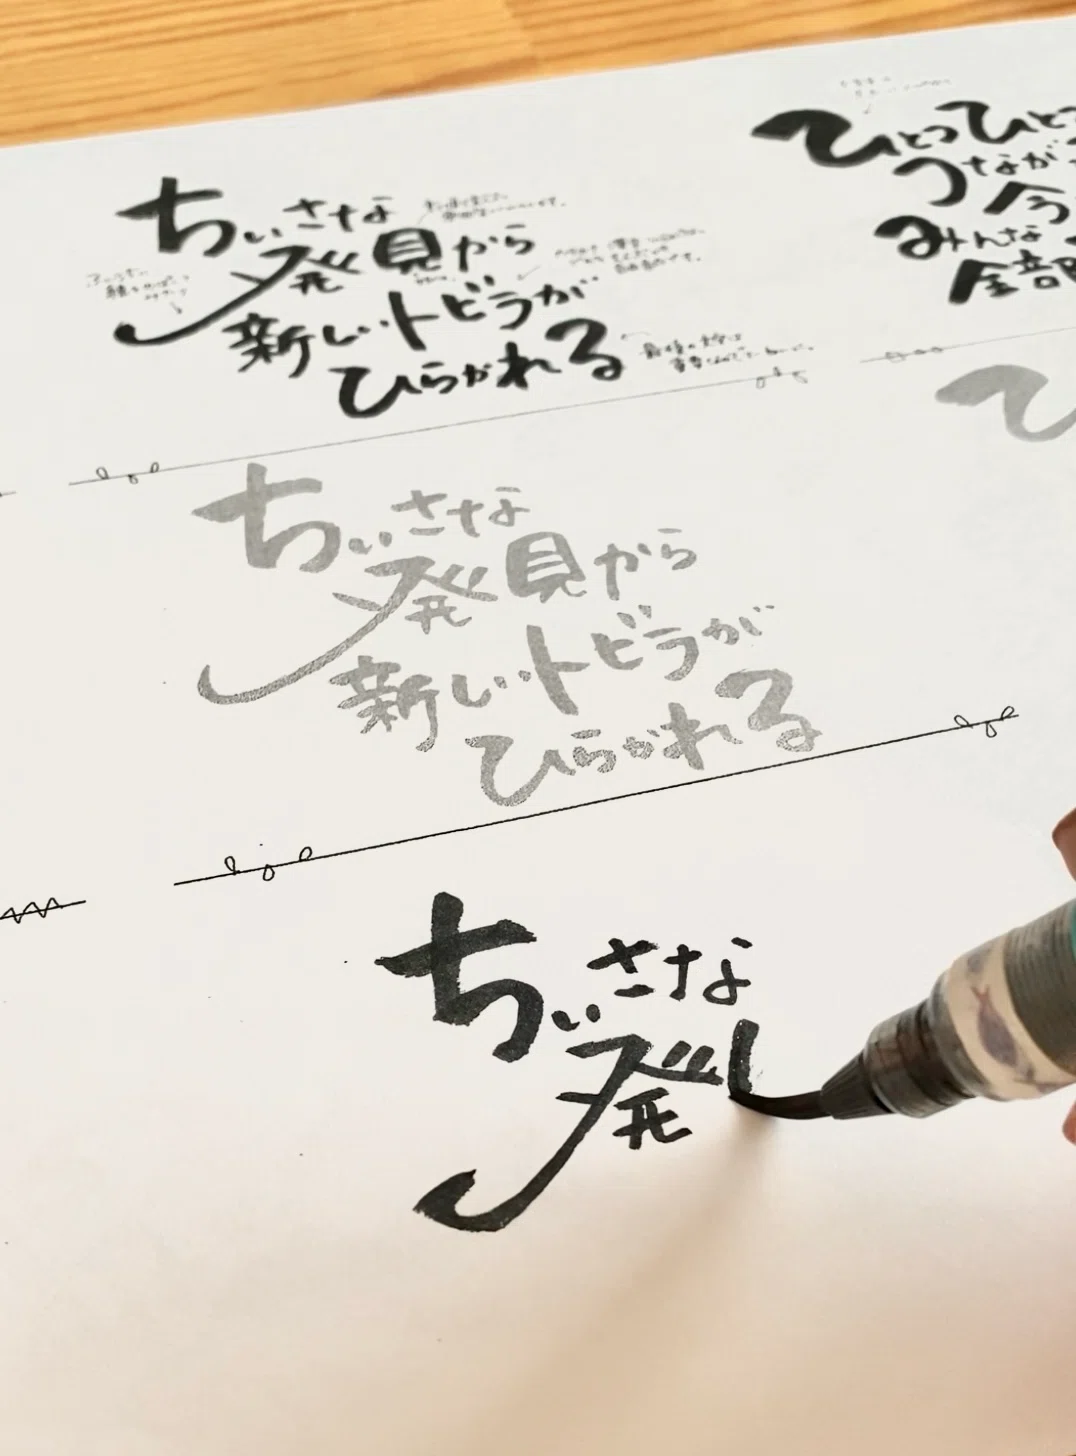 ちいさな
発見から
新しいトビラが
ひらかれる
ひとつひと
つなが
今
みんな
全部
ちいさな
発見から
新しいトビラが
ひらかれる
ひ
ちいさな
発